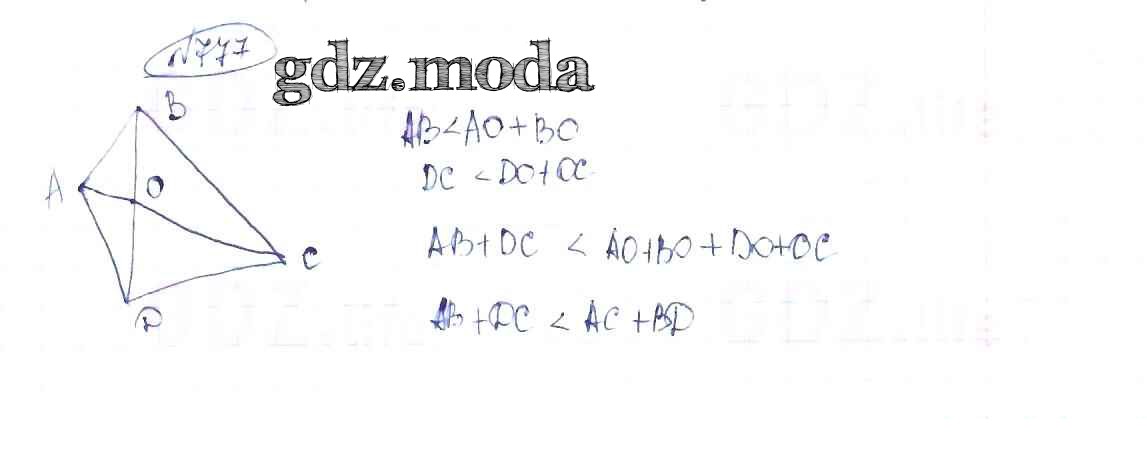 №777
gdz.moda
B
A
O
C
D
AB<AO+BO
DC <DO+OC
AB+DC < AO+BO+DO+OC
AB+DC < AC+BD